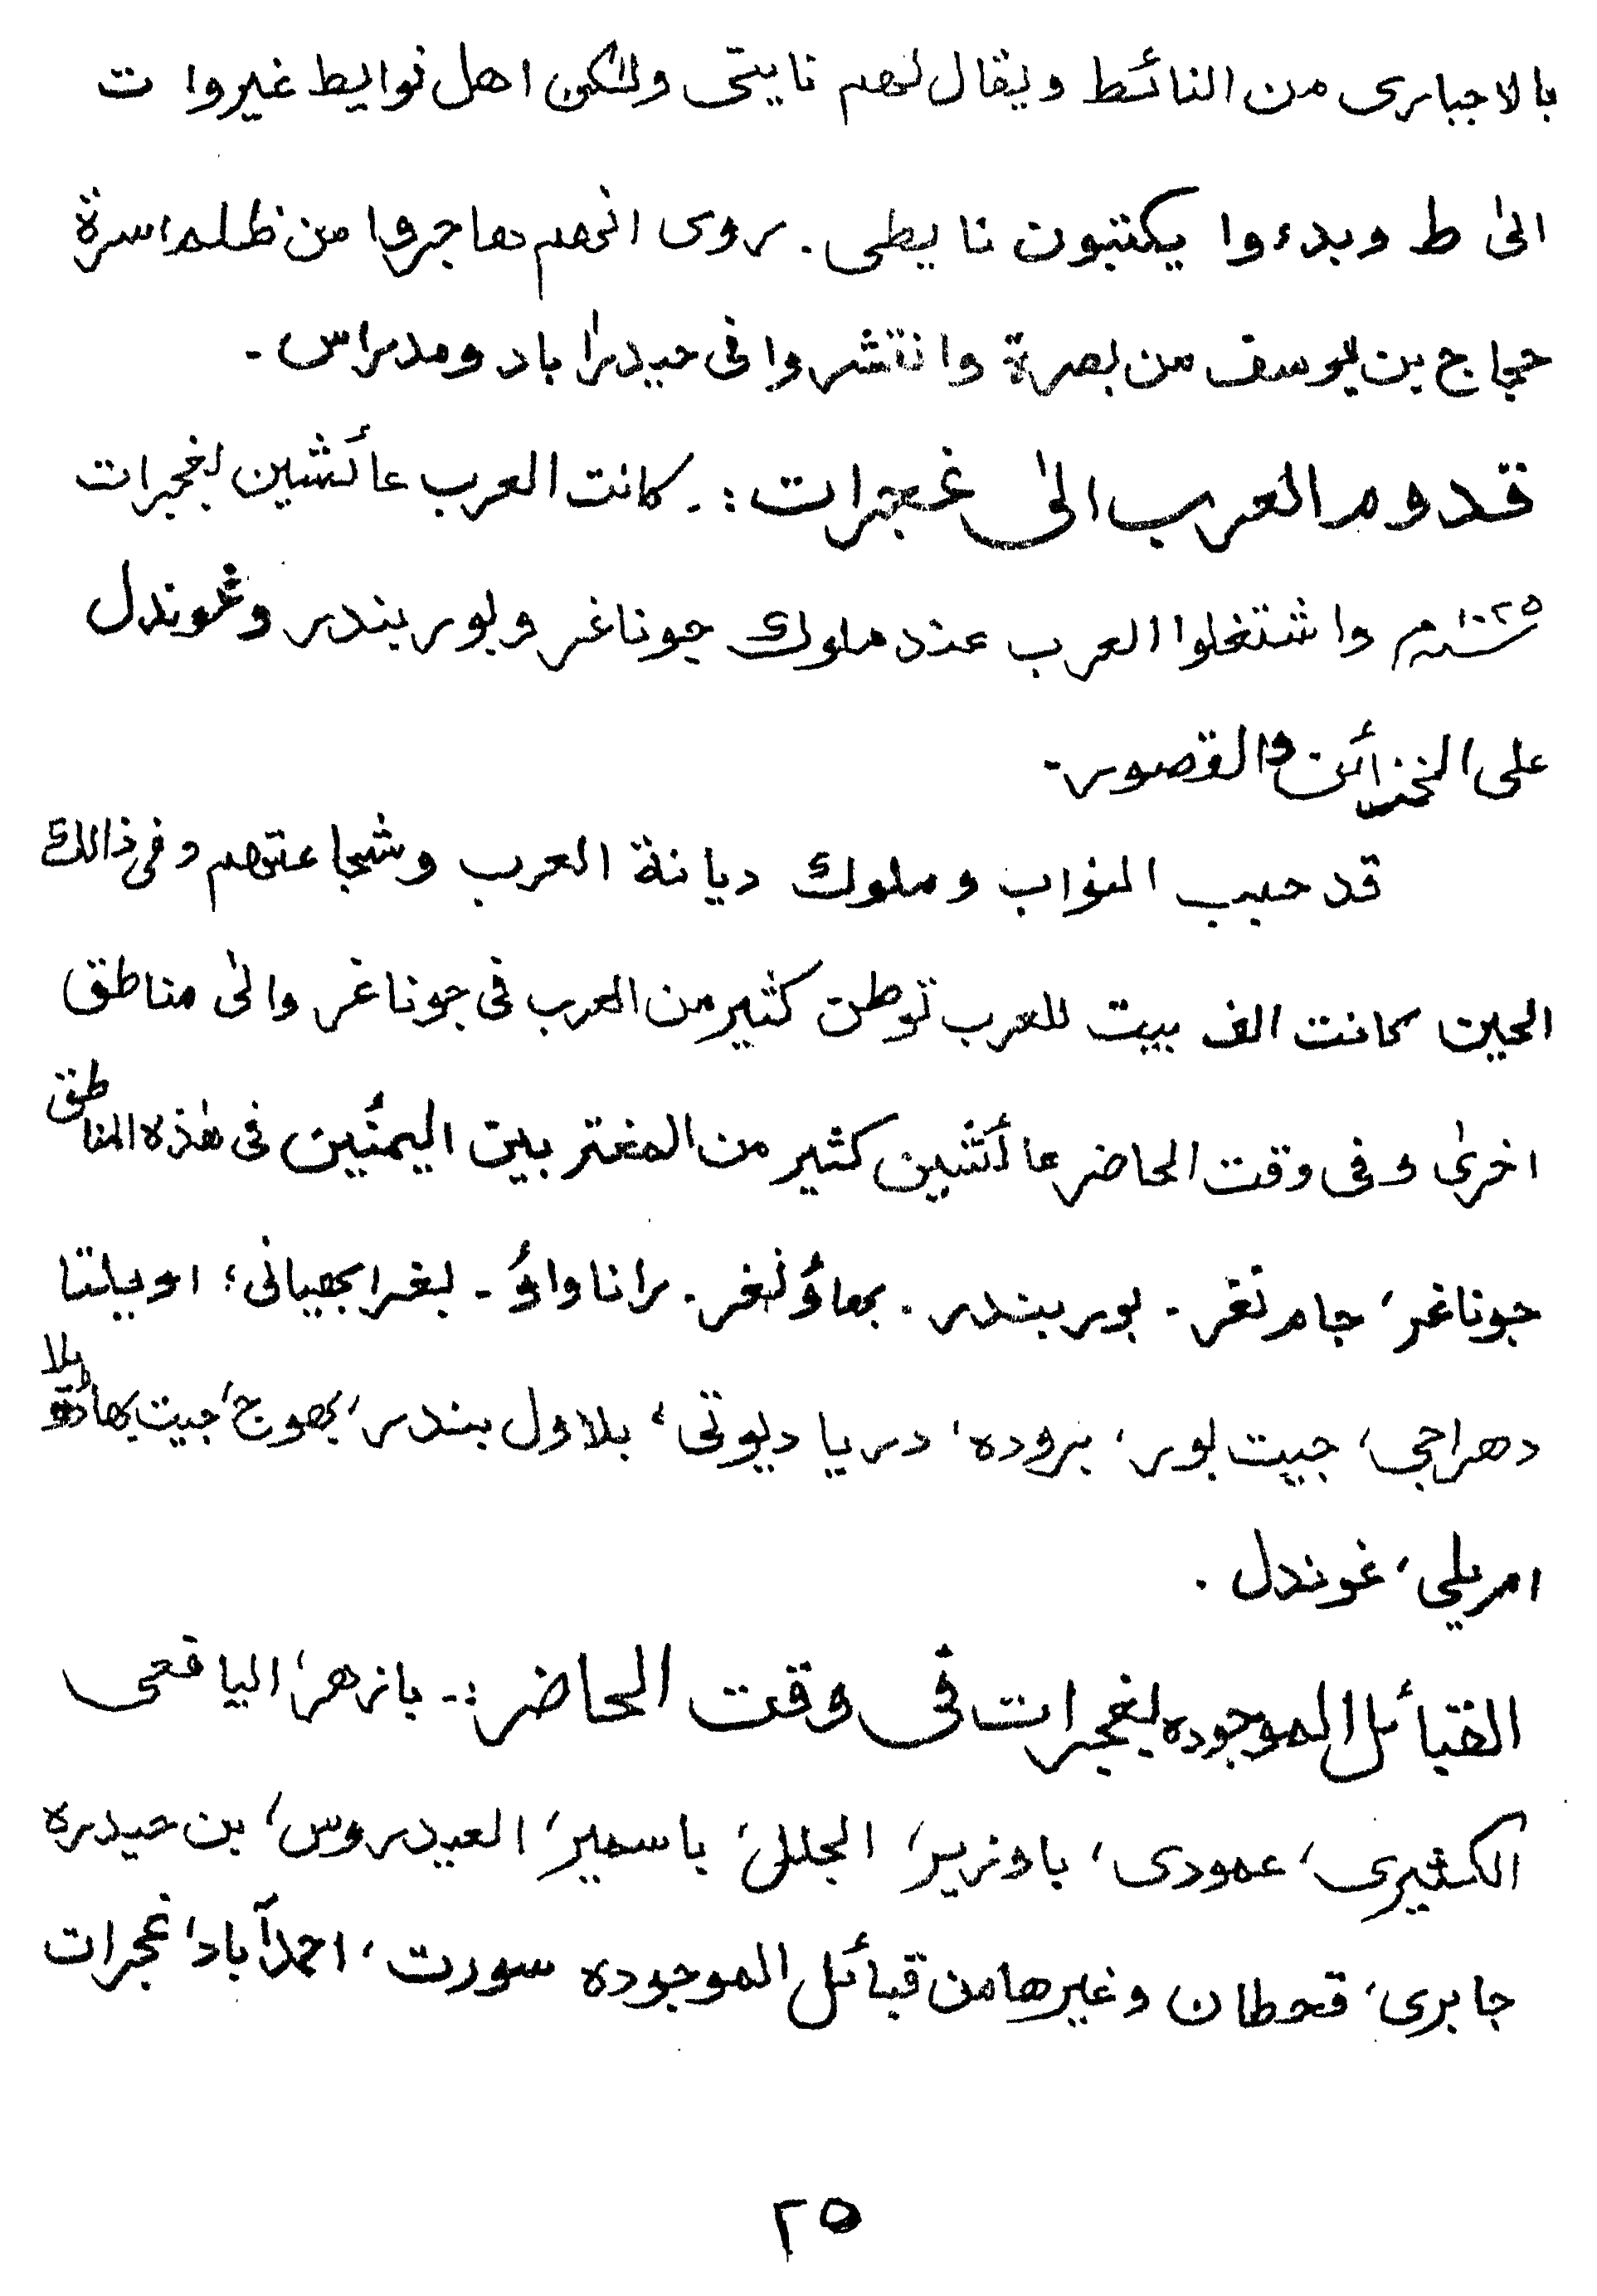 بالاجباری من النائط ویقال لهم نایتی ولکن اهل نوایط غیروا ت
الیٰ ط وبدءوا یکتبون نایطی۔ روی انهم هاجروا من ظلم اسرة
حجاج بن یوسف من بصرة وانتشروا فی حیدراباد ومدراس ۔
قدوم العرب الیٰ غجرات :۔ کانت العرب عائشین لغجرات
۱۰۲۵م واشتغلوا العرب عند ملوك جوناغر وبوربندر وغوندل
علی الخزائن والقصور ۔
قد حبب النواب وملوك دیانة العرب وشجاعتهم وفی ذالك
الحین کانت الف بیت للعرب توطن کثیر من العرب فی جوناغر والیٰ مناطق
اخریٰ وفی وقت الحاضر عائشین کثیر من المغتربین الیمنّین فی هٰذه المناطق
جوناغر، جام نغر ۔ بوربندر ۔ بهاؤنغر ۔ راناواؤ ۔ لغرابجیانی؛ اوبیلتا
دهراجی، جیت بور، بروده، دریا دیوتی، بلاول بندر، بهوج، جیت
امریلی، غوندل ۔
القبائل الموجوده لغجرات فی وقت الحاضر :۔ بازهر، الیافعی
الکثیری، عمودی، باوزیر، الجلل، باسمیر، العیدروس، بن حیدره
جابری، قحطان وغیرها من قبائل الموجوده سورت، احمدآباد، غجرات
۲۵